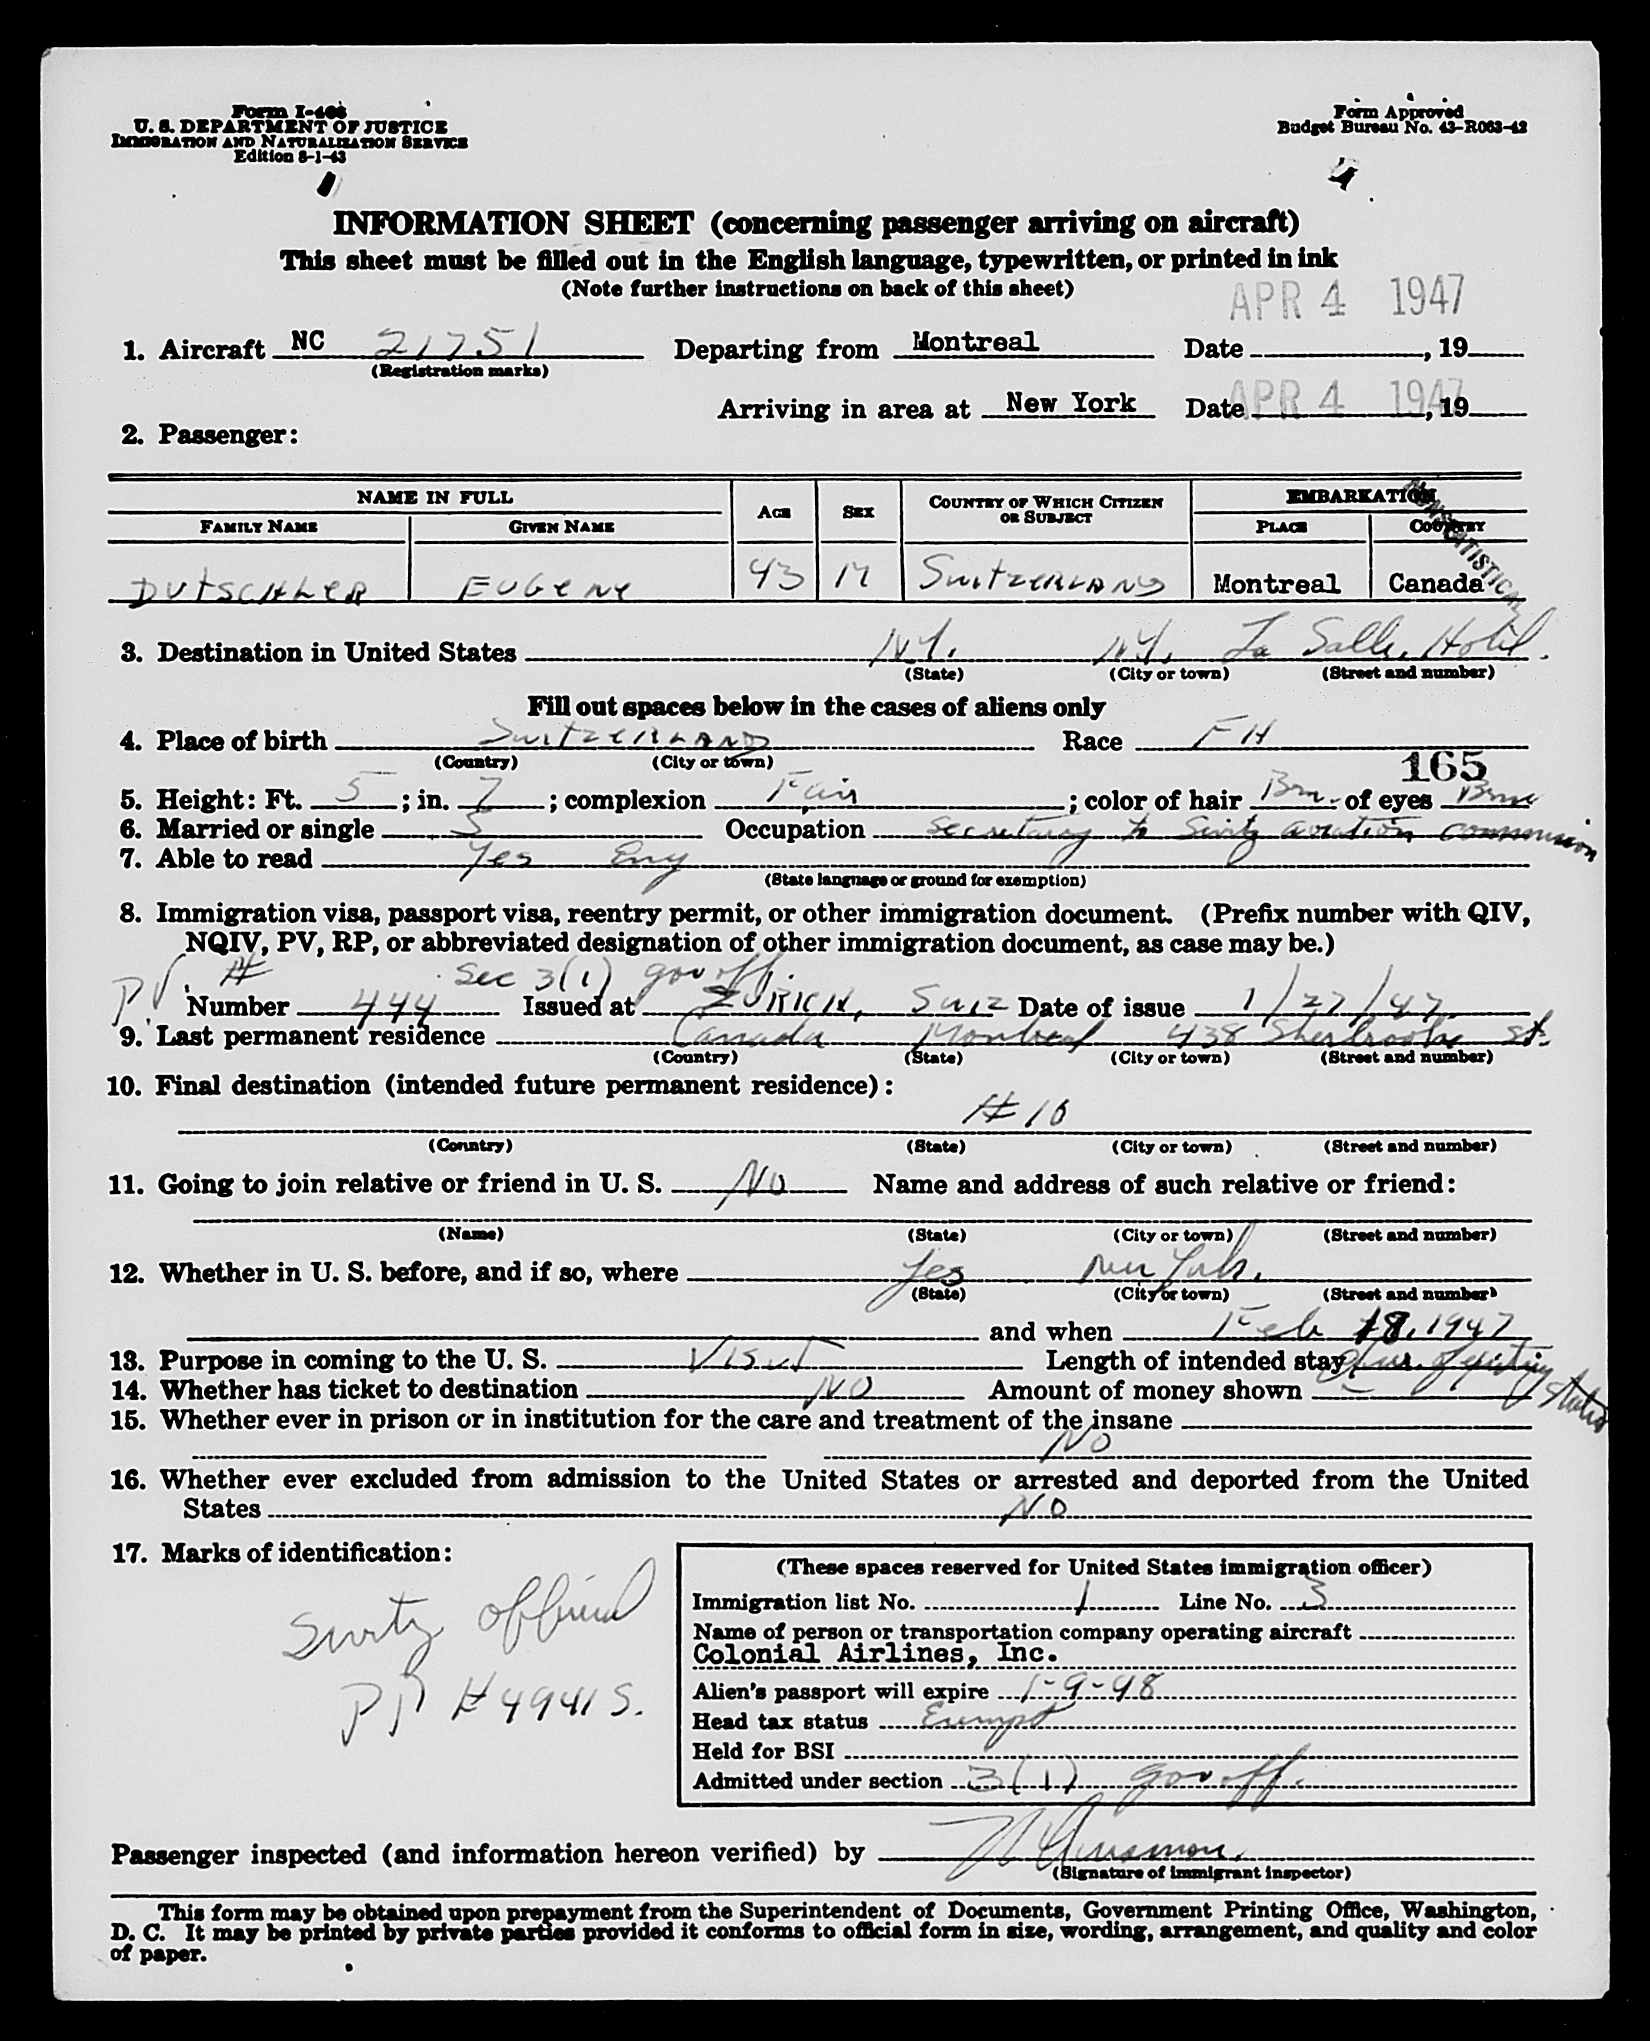 Form I-466
U. S. DEPARTMENT OF JUSTICE
IMMIGRATION AND NATURALIZATION SERVICE
Edition 8-1-43
Form Approved
Budget Bureau No. 43-R063-42
INFORMATION SHEET (concerning passenger arriving on aircraft)
This sheet must be filled out in the English language, typewritten, or printed in ink
(Note further instructions on back of this sheet)
APR 4 1947
1. Aircraft NC 21751 Departing from Montreal Date , 19
(Registration marks)
Arriving in area at New York Date APR 4 1947, 19
2. Passenger:
NAME IN FULL AGE SEX COUNTRY OF WHICH CITIZEN OR SUBJECT EMBARKATION
FAMILY NAME GIVEN NAME PLACE COUNTRY
NONSTATISTICAL
DUTSCHLER EUGENE 43 M SWITZERLAND Montreal Canada
3. Destination in United States N.Y. N.Y. La Salle Hotel.
(State) (City or town) (Street and number)
Fill out spaces below in the cases of aliens only
4. Place of birth SWITZERLAND Race FH
(Country) (City or town)
165
5. Height: Ft. 5 ; in. 7 ; complexion Fair ; color of hair Brn. of eyes Brn
6. Married or single S Occupation Secretary to Switz aviation commission
7. Able to read Yes Eng
(State language or ground for exemption)
8. Immigration visa, passport visa, reentry permit, or other immigration document. (Prefix number with QIV,
NQIV, PV, RP, or abbreviated designation of other immigration document, as case may be.)
PV. # Sec 3(1) gov off.
Number 444 Issued at ZURICH, Swiz Date of issue 1/27/47
9. Last permanent residence Canada Montreal 438 Sherbrooke St.
(Country) (State) (City or town) (Street and number)
10. Final destination (intended future permanent residence):
#10
(Country) (State) (City or town) (Street and number)
11. Going to join relative or friend in U. S. NO Name and address of such relative or friend:
(Name) (State) (City or town) (Street and number)
12. Whether in U. S. before, and if so, where Yes New York.
(State) (City or town) (Street and number)
and when Feb 18, 1947
13. Purpose in coming to the U. S. VISIT Length of intended stay dur. of existing status
14. Whether has ticket to destination NO Amount of money shown –
15. Whether ever in prison or in institution for the care and treatment of the insane
NO
16. Whether ever excluded from admission to the United States or arrested and deported from the United
States NO
17. Marks of identification:
Switz official
PP #4941 S.
(These spaces reserved for United States immigration officer)
Immigration list No. 1 Line No. 3
Name of person or transportation company operating aircraft
Colonial Airlines, Inc.
Alien's passport will expire 1-9-48
Head tax status Exempt
Held for BSI
Admitted under section 3(1) gov off.
Passenger inspected (and information hereon verified) by
(Signature of immigrant inspector)
This form may be obtained upon prepayment from the Superintendent of Documents, Government Printing Office, Washington,
D. C. It may be printed by private parties provided it conforms to official form in size, wording, arrangement, and quality and color
of paper.